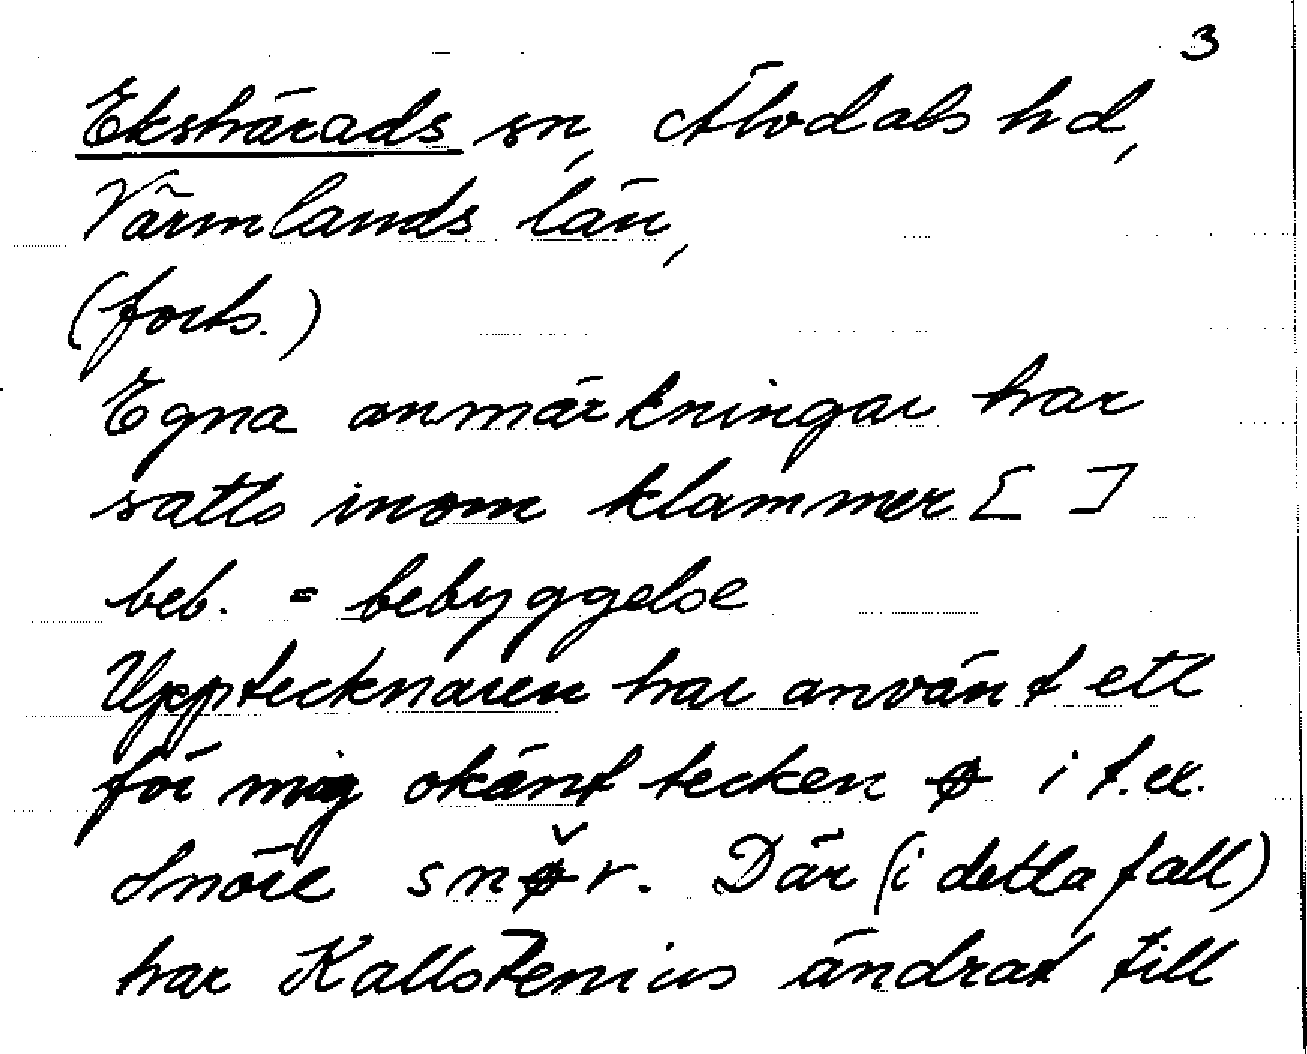 3
Ekshärads sn, Älvdals hd,
Värmlands län,
(forts.)
Egna anmärkningar har
satts inom klammer [ ]
beb. = bebyggelse
Upptecknaren har använt ett
för mig okänt tecken ꝋ i t.ex.
Snöre snꝋ̌r. Där (i detta fall)
har Kallstenius ändrat till